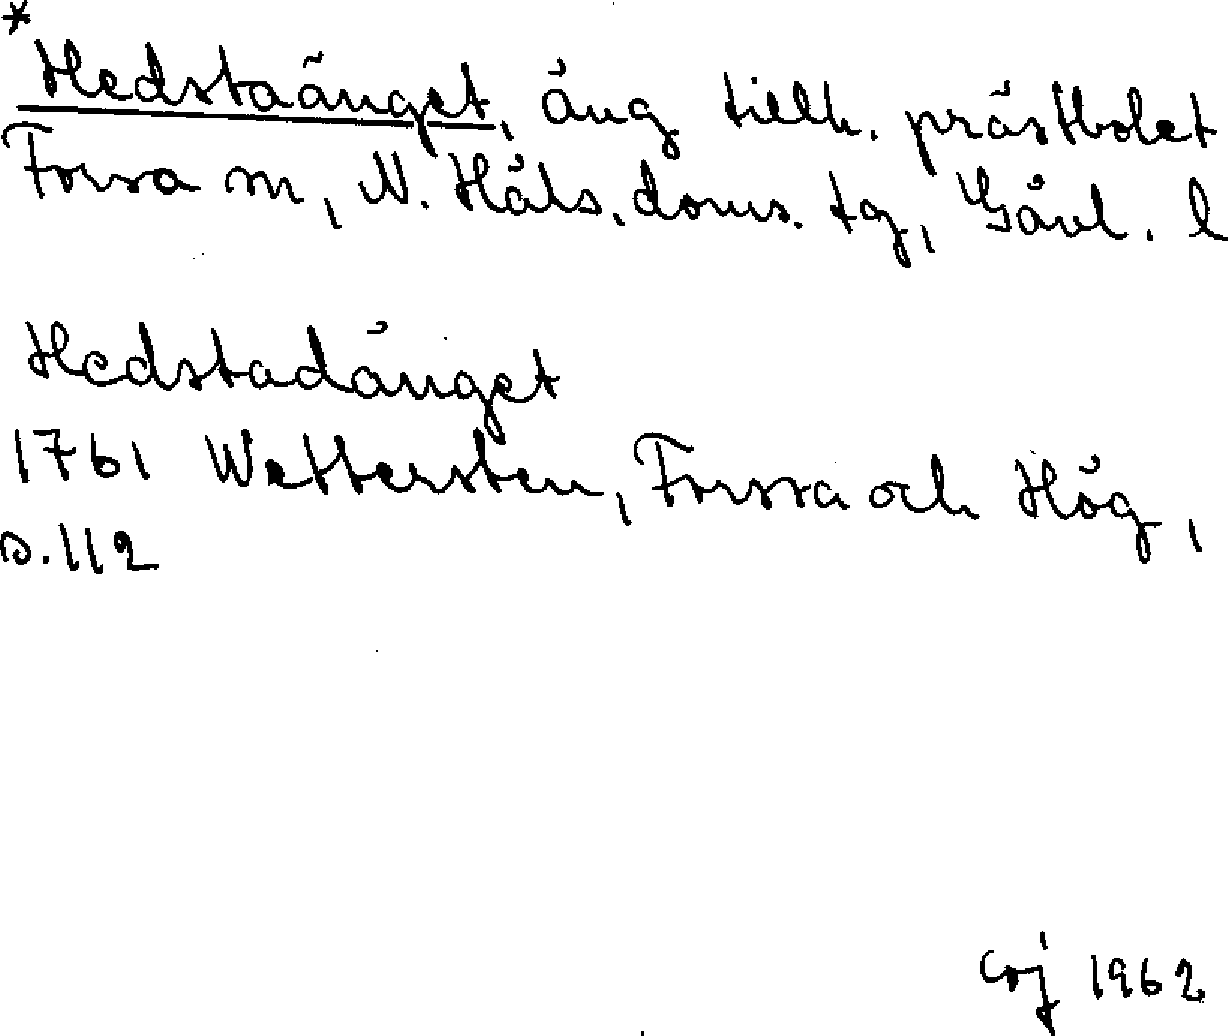 *
Hedstaänget, äng tillh. prästbolet
Forsa sn, N. Häls. doms. tg, Gävl. l
Hedstadänget
1761 Wettersten, Forssa och Hög,
s. 112
1962